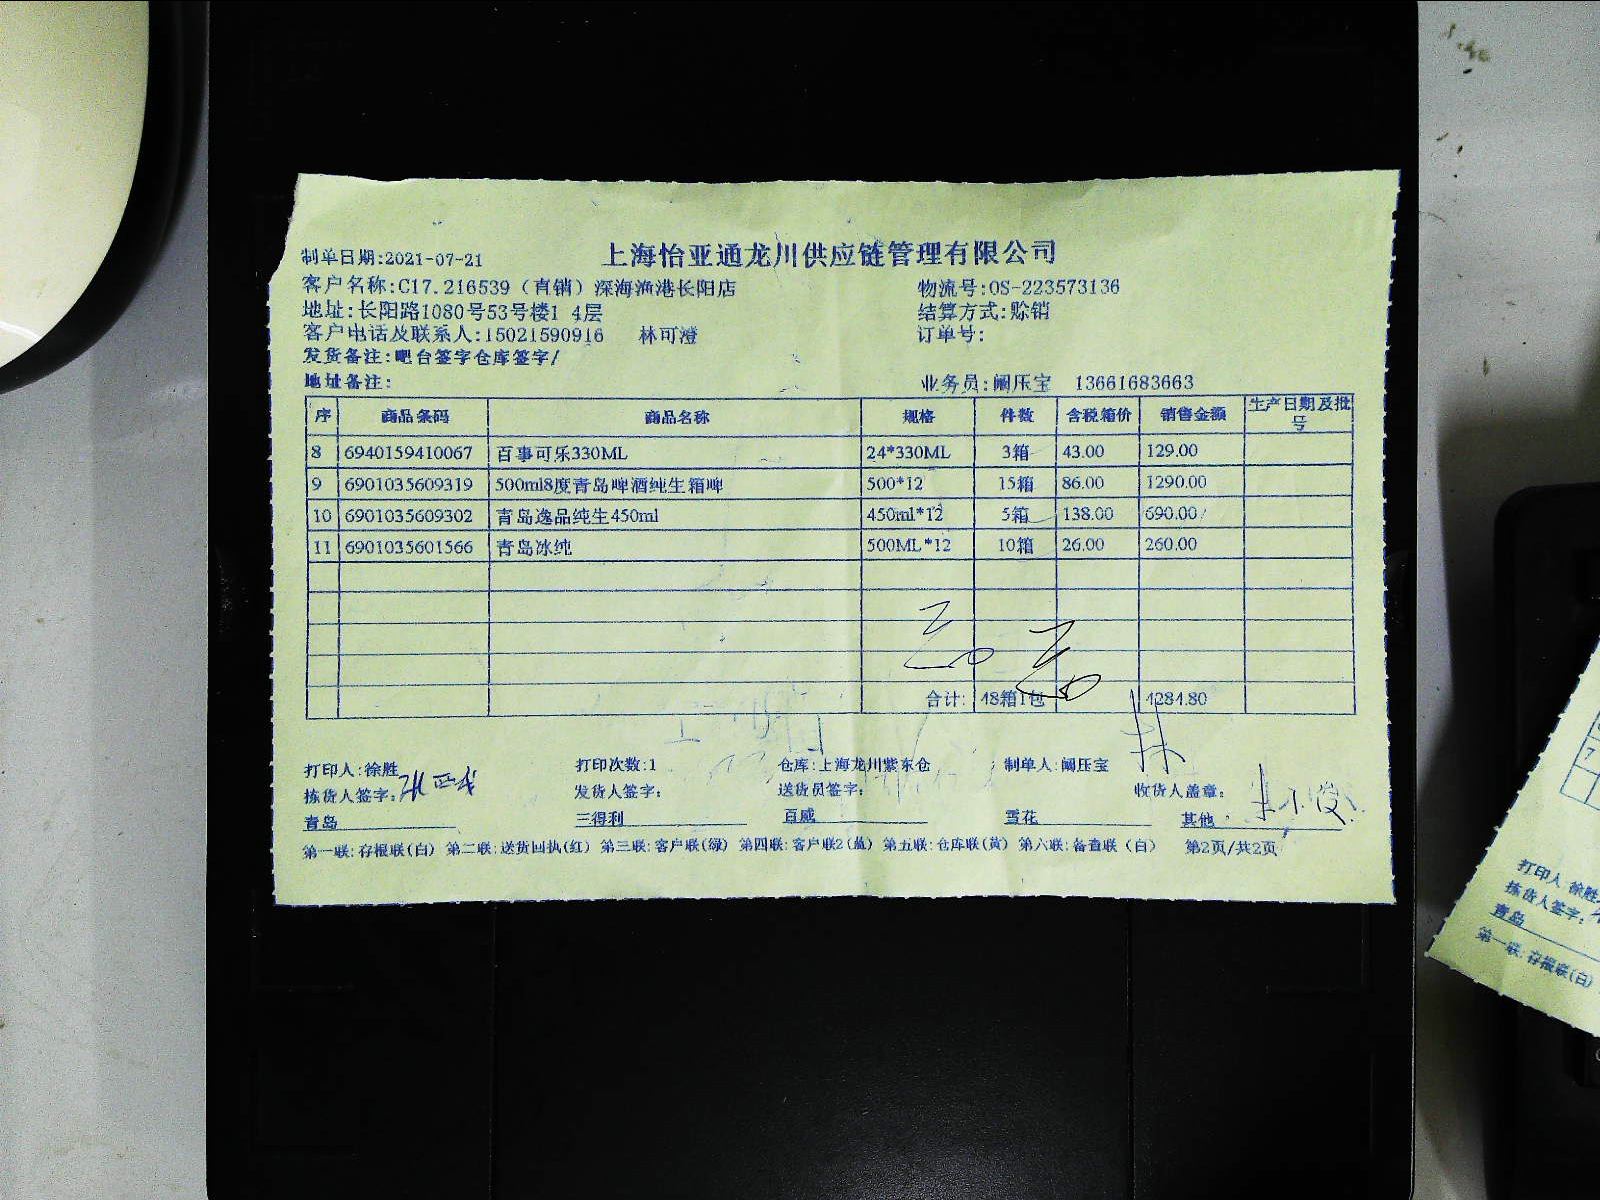 上海怡亚通龙川供应链管理有限公司
制单日期:2021-07-21
客户名称:C17.216539（直销）深海渔港长阳店 物流号:OS-223573136
地址:长阳路1080号53号楼1 4层 结算方式:赊销
客户电话及联系人:15021590916 林可澄 订单号:
发货备注:吧台签字仓库签字/
地址备注: 业务员:阚压宝 13661683663
序 商品条码 商品名称 规格 件数 含税箱价 销售金额 生产日期及批号
8 6940159410067 百事可乐330ML 24*330ML 3箱 43.00 129.00
9 6901035609319 500ml8度青岛啤酒纯生箱啤 500*12 15箱 86.00 1290.00
10 6901035609302 青岛逸品纯生450ml 450ml*12 5箱 138.00 690.00
11 6901035601566 青岛冰纯 500ML*12 10箱 26.00 260.00
合计: 48箱1包 4284.80
打印人:徐胜 打印次数:1 仓库:上海龙川紫东仓 制单人:阚压宝
拣货人签字: 发货人签字: 送货员签字: 收货人盖章:
青岛 三得利 百威 雪花 其他
第一联:存根联(白) 第二联:送货回执(红) 第三联:客户联(绿) 第四联:客户联2(蓝) 第五联:仓库联(黄) 第六联:备查联（白） 第2页/共2页
7
打印人:徐胜
拣货人签字:
青岛
第一联:存根联(白)